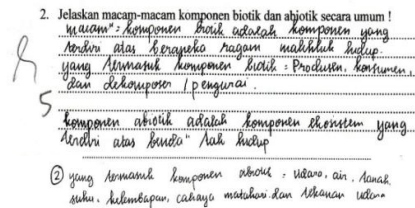 2. Jelaskan macam-macam komponen biotik dan abiotik secara umum !
macam" komponen biotik adalah komponen yang
terdiri atas berapeka ragam makhluk hidup.
yang termasuk komponen biotik = Produsen, konsumen,
dan dekomposer / pengurai.
5
komponen abiotik adalah komponen ekosistem yang
terdiri atas benda" tak hidup
② yang termasuk komponen abiotik = udara, air, tanah,
suhu, kelembapan, cahaya matahari dan tekanan udara